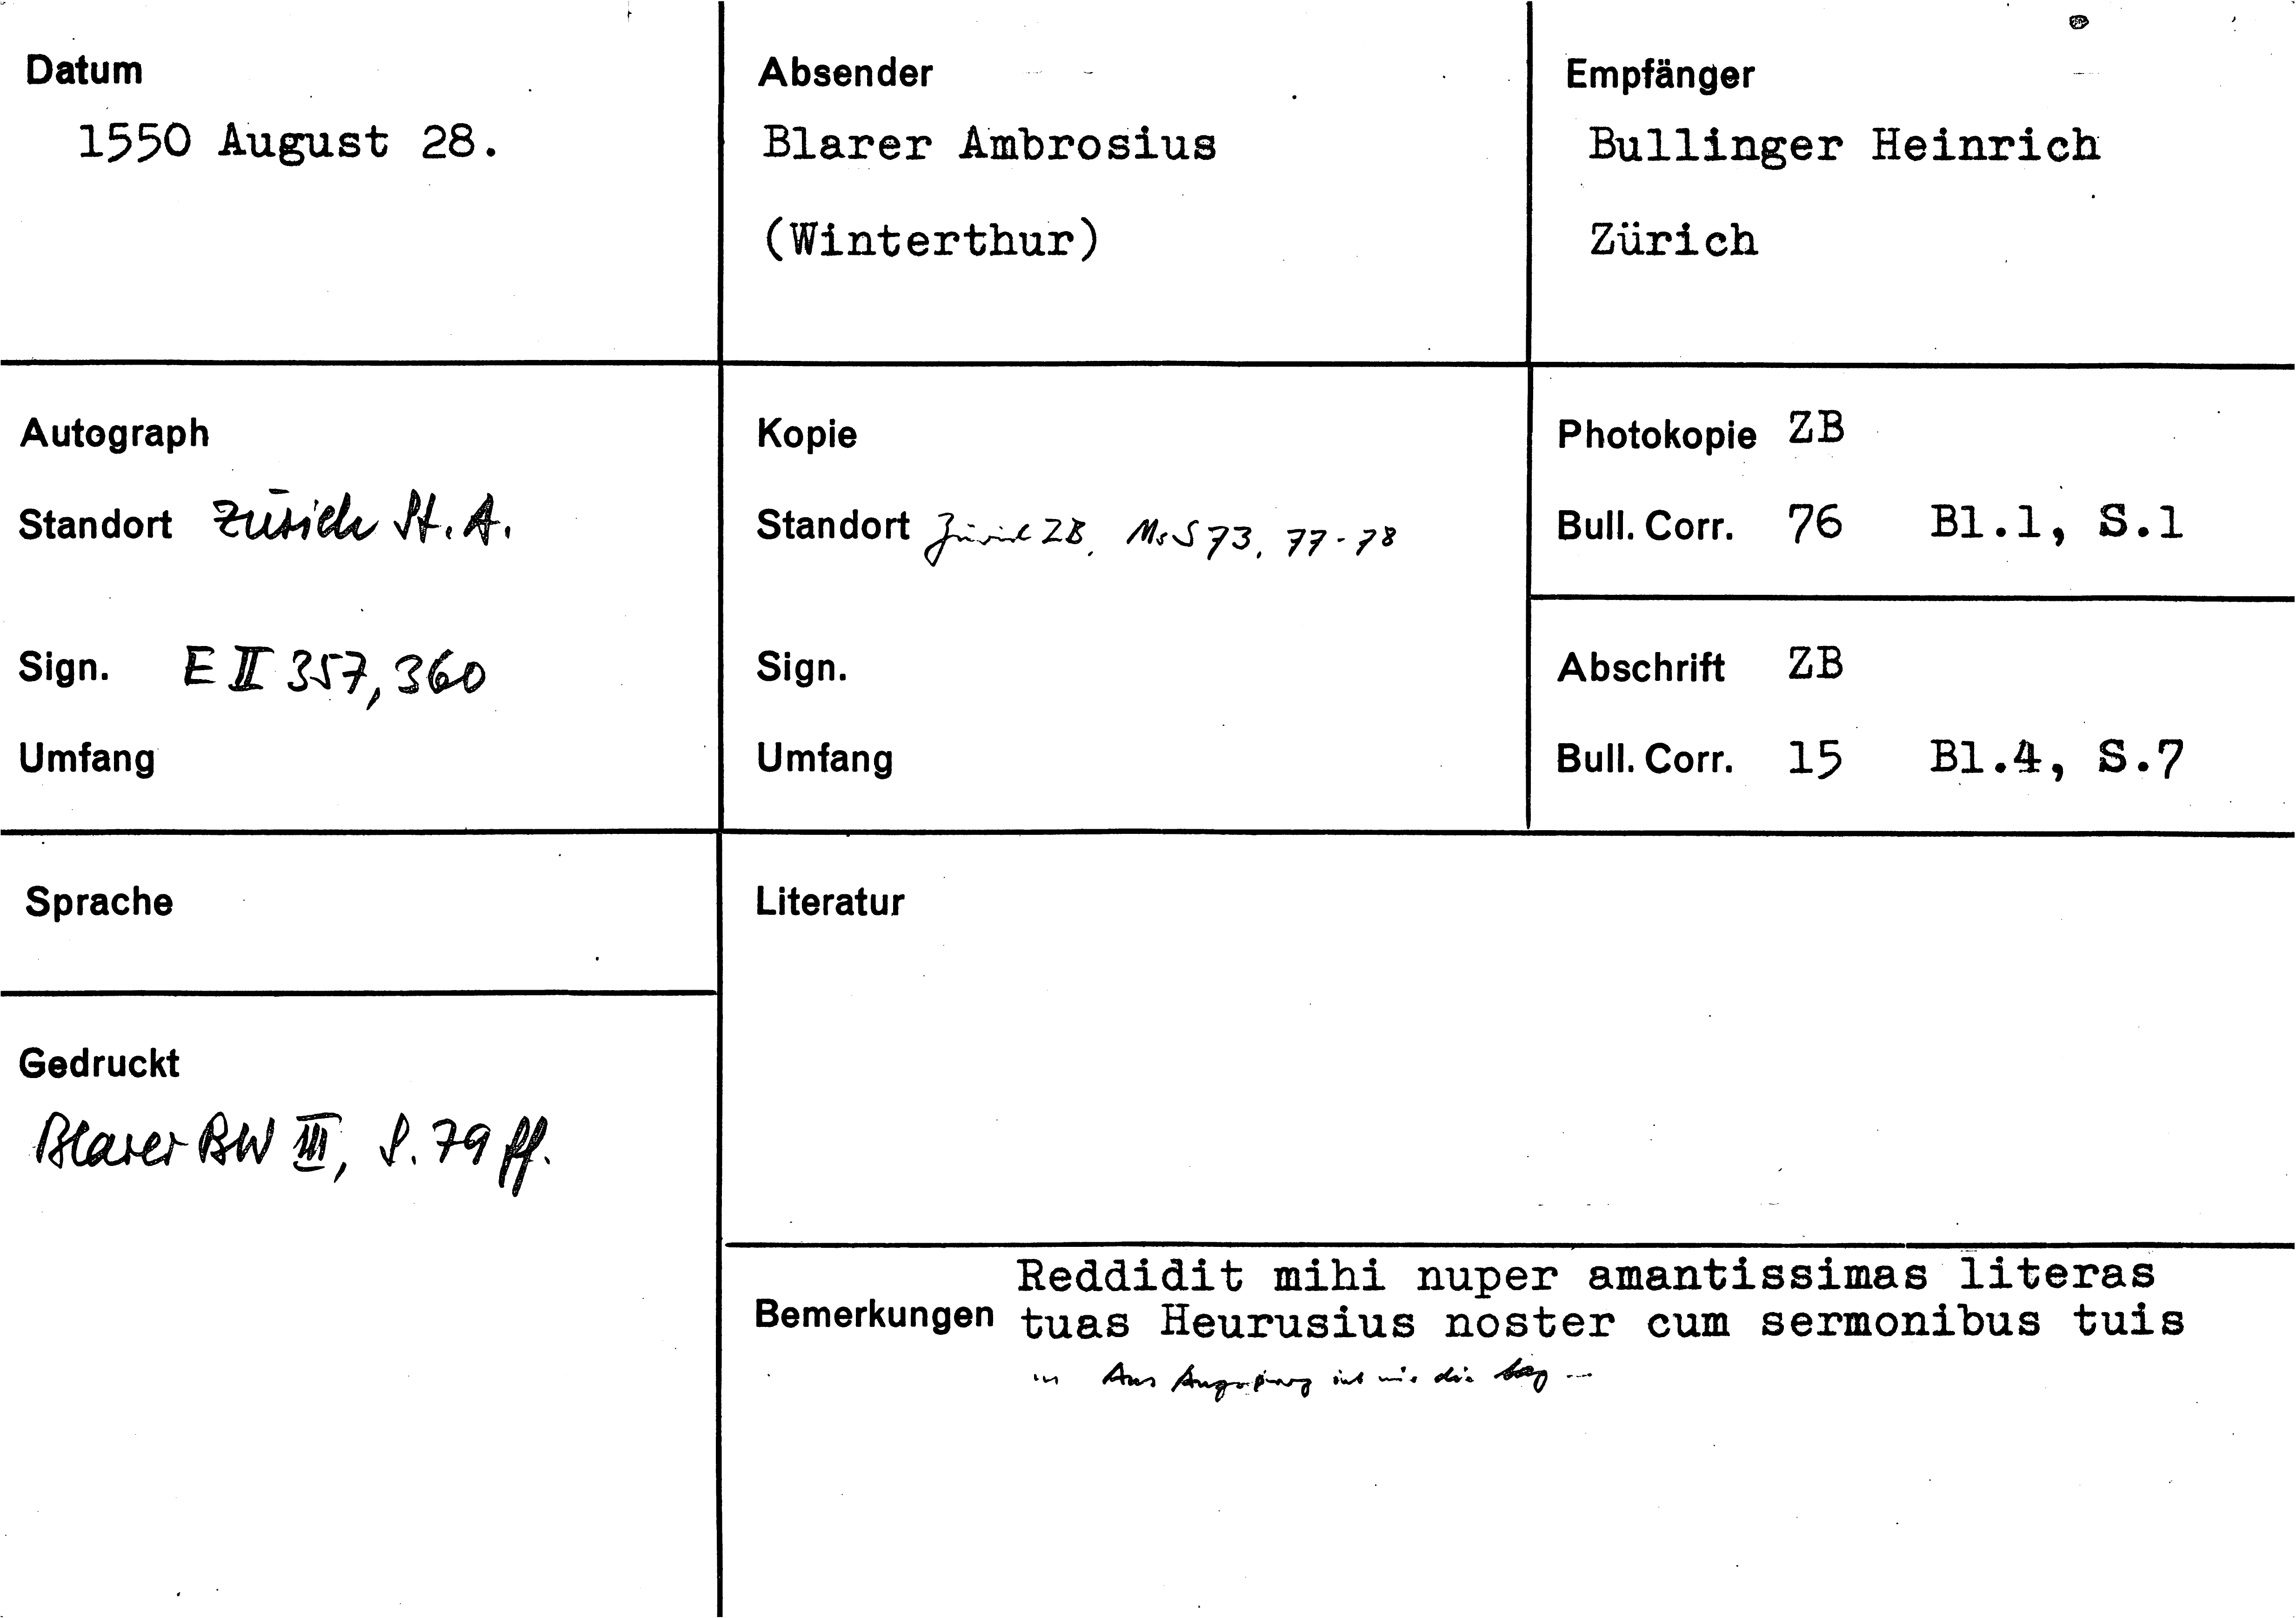 Datum
1550 August 28.
Absender
Blarer Ambrosius
(Winterthur)
Empfänger
Bullinger Heinrich
Zürich
Autograph
Standort Zürich St. A.
Sign. E II 357, 360
Umfang
Kopie
Standort Zürich ZB, Ms S 73, 77-78
Sign.
Umfang
Photokopie ZB
Bull. Corr. 76 Bl.1, S.1
Abschrift ZB
Bull. Corr. 15 Bl.4, S.7
Sprache
Gedruckt
Blarer BW III, S. 79 ff.
Literatur
Bemerkungen
Reddidit mihi nuper amantissimas literas
tuas Heurusius noster cum sermonibus tuis
... Aus Augspurg ist wie die sag ...